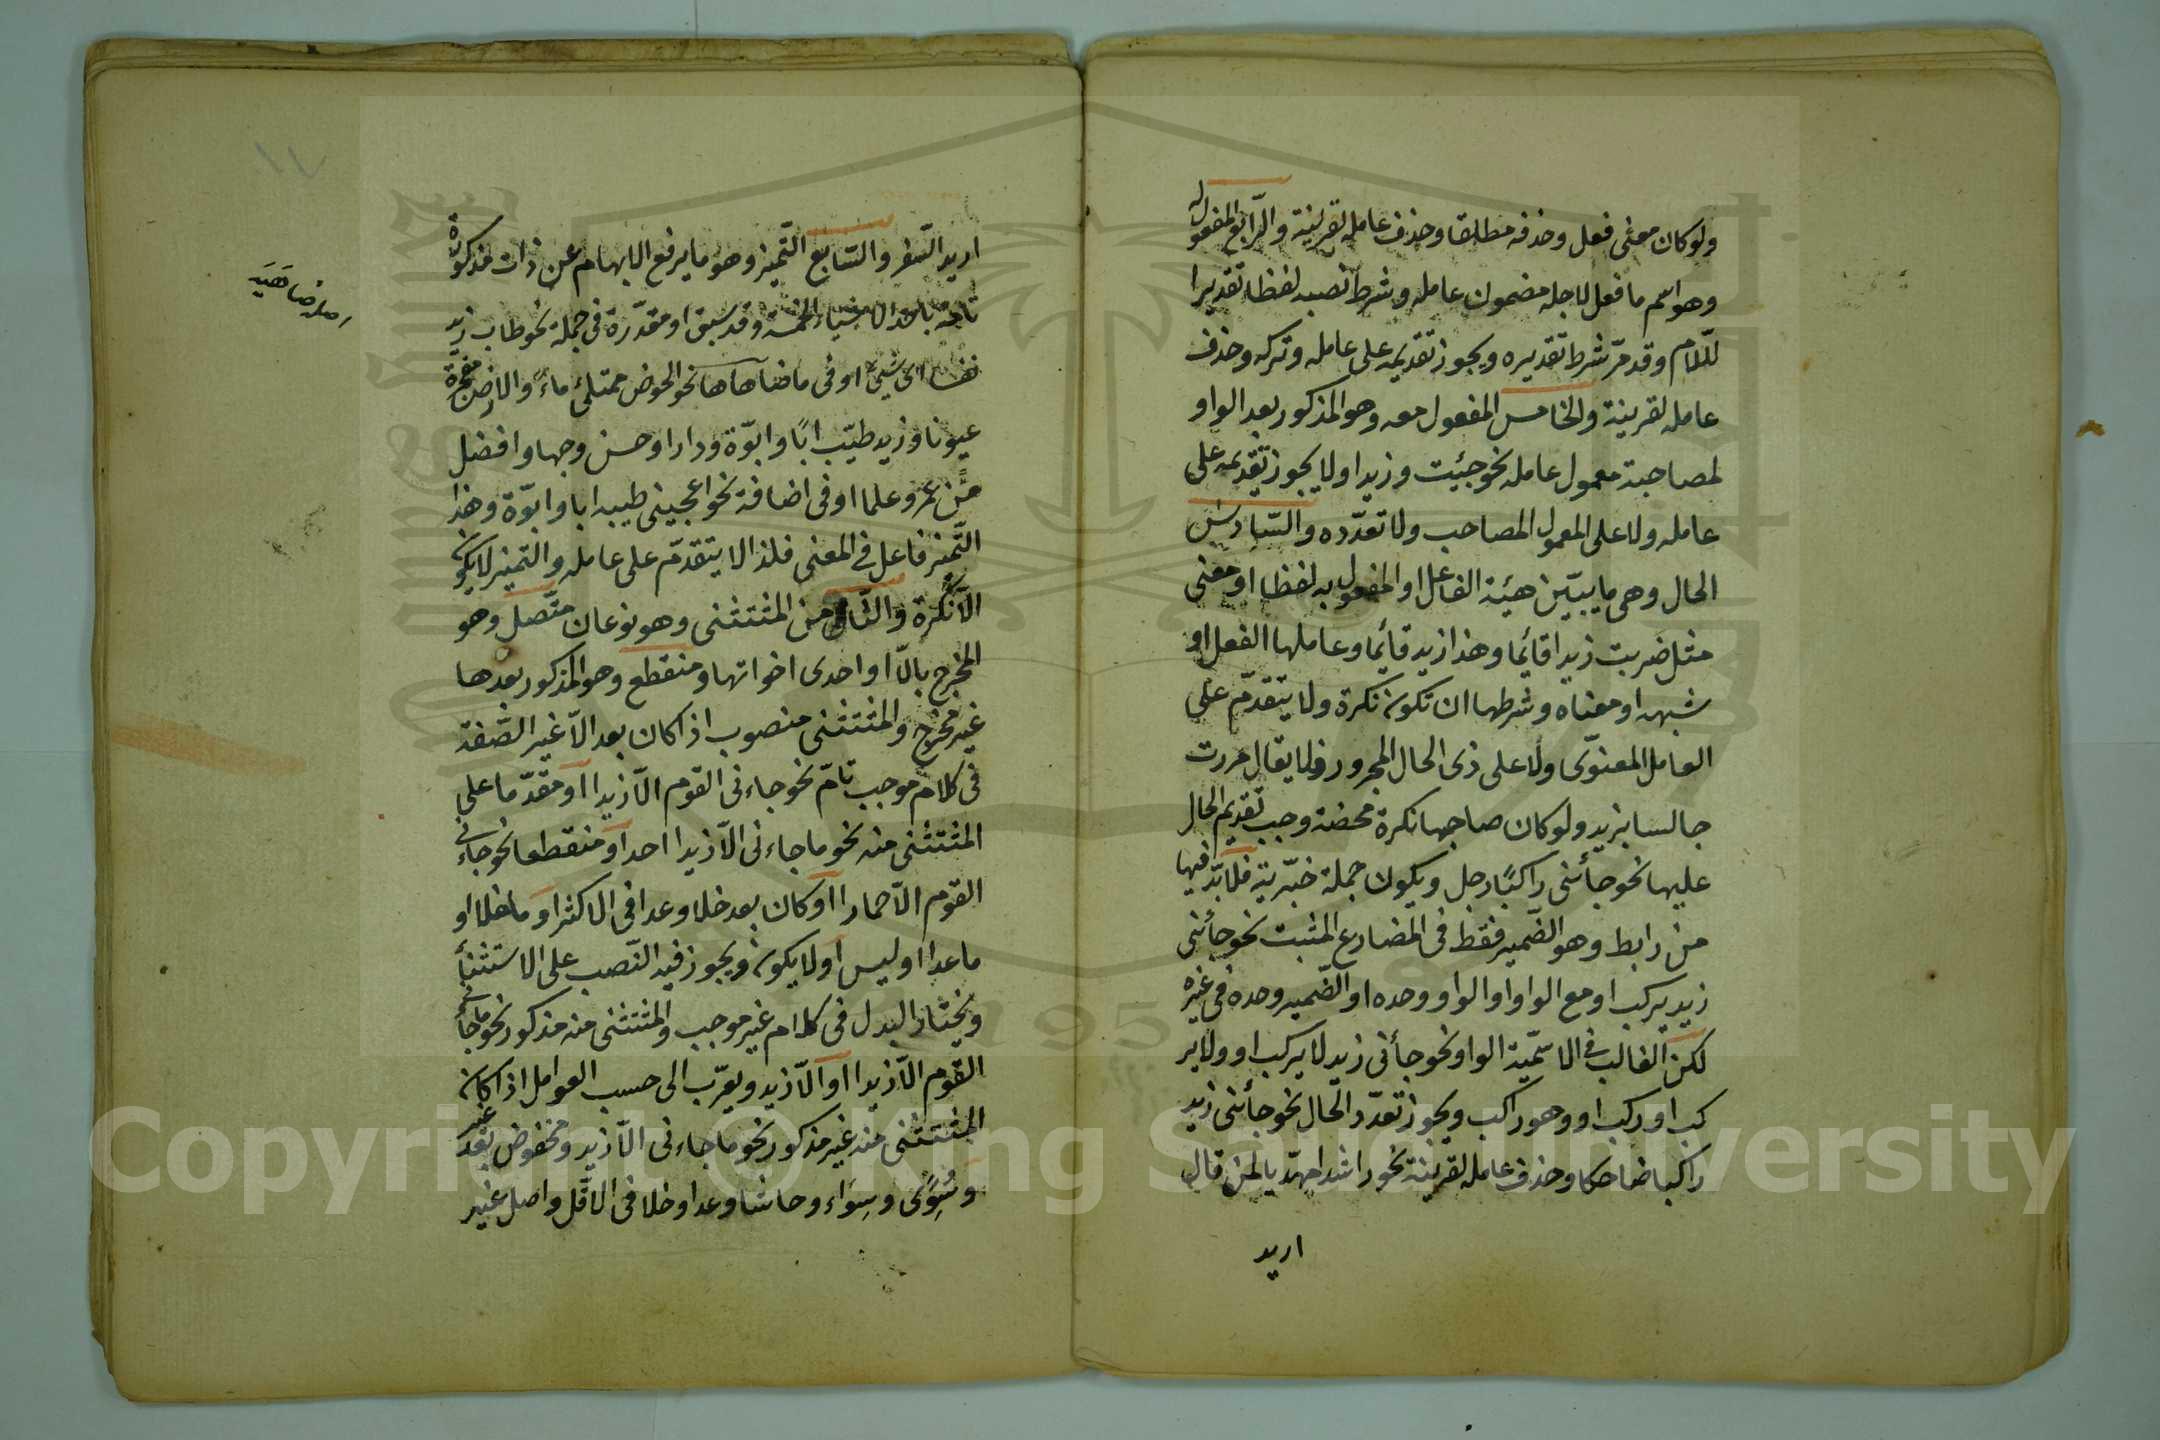 ولو كان معنى فعل وحذفه مطلقا وحذف عامله لقرينة والرّابع المفعول له
وهو اسم ما فعل لاجله مضمون عامله وشرط نصبه لفظا تقديرا
للّام وقد مرّ شرط تقديره ويجوز تقديمه على عامله وتركه وحذف
عامله لقرينة والخامس المفعول معه وهو المذكور بعد الواو
لمصاحبة معمول عامله نحو جئت وزيدا ولا يجوز تقديمه على
عامله ولا على المعمول المصاحب ولا تعدّده والسّادس
الحال وهى ما يبيّن هيئة الفاعل او المفعول به لفظا او معنى
مثل ضربت زيدا قائما وهذا زيد قائما وعاملها الفعل او
شبهه او معناه وشرطها ان تكون نكرة ولا يتقدّم على
العامل المعنوّى ولا على ذى الحال المجرور فلا يقال مررت
جالسا بزيد ولو كان صاحبها نكرة محضة وجب تقديم الحال
عليها نحو جأنى راكبًا رجل ويكون جملة خبّرية فلا بدّ فيها
من رابط وهو الضّمير فقط فى المضارع المثبت نحو جأنى
زيد يركب او مع الواو او الواو وحده او الضّمير وحده فى غيره
لكن الغالب فى الاسمّية الواو نحو جأنى زيد لا يركب او ولا ير
كب او ركب او وهو راكب ويجوز تعدّد الحال نحو جأنى زيد
راكبا ضاحكا وحذف عامله لقرينة نحو راشدا مهدّيا لمن قال
اريد
١٧
اريد السّفر والسّابع التّميز وهو ما يرفع الابهام عن ذات مذكورة
تامّة باحد الاشياء الخمسة وقد سبق او مقدّرة فى جملة نحو طاب زيد
نفسا اى شيئ او فى ما ضاهاها نحو الحوض ممتلئ ماءً والارض مفجرة
عيونا وزيد طيّب ابًا وابوّة ودارا وحسن وجها وافضل
من عمرو علما او فى اضافة نحو اعجبنى طيبه ابا وابوّة وهذا
التّميز فاعل فى المعنى فلذا لا يتقدّم على عامله والتّميز لا يكون
الّا نكرة والثّامن المثتثنى وهو نوعان متّصل وهو
المخرج بالّا او احدى اخواتها ومنقطع وهو المذكور بعدها
غير مخرج والمثتثنى منصوب اذا كان بعد الّا غير الصّفة
فى كلام موجب تامّ نحو جاءنى القوم الّا زيدا او مقدّما على
المثتثنى منه نحو ما جاءنى الّا زيدا احد او منقطعا نحو جاءنى
القوم الّا حمارا او كان بعد خلا وعدا فى الاكثر او ما خلا او
ما عدا او ليس او لا يكون ويجوز فيه النّصب على الاستثنأ
ويختار البدل فى كلام غير موجب والمثتثنى منه مذكور نحو ما جأنى
القوم الّا زيدا او الّا زيد ويعرّب الى حسب العوامل اذا كان
المثتثنى منه غير مذكور نحو ما جاءنى الّا زيد ومخفوض بعد غير
وسُِوًى وسِوَاء وحاشا وعدا وخلا فى الاقّل واصل غير
Copyright © King Saud University